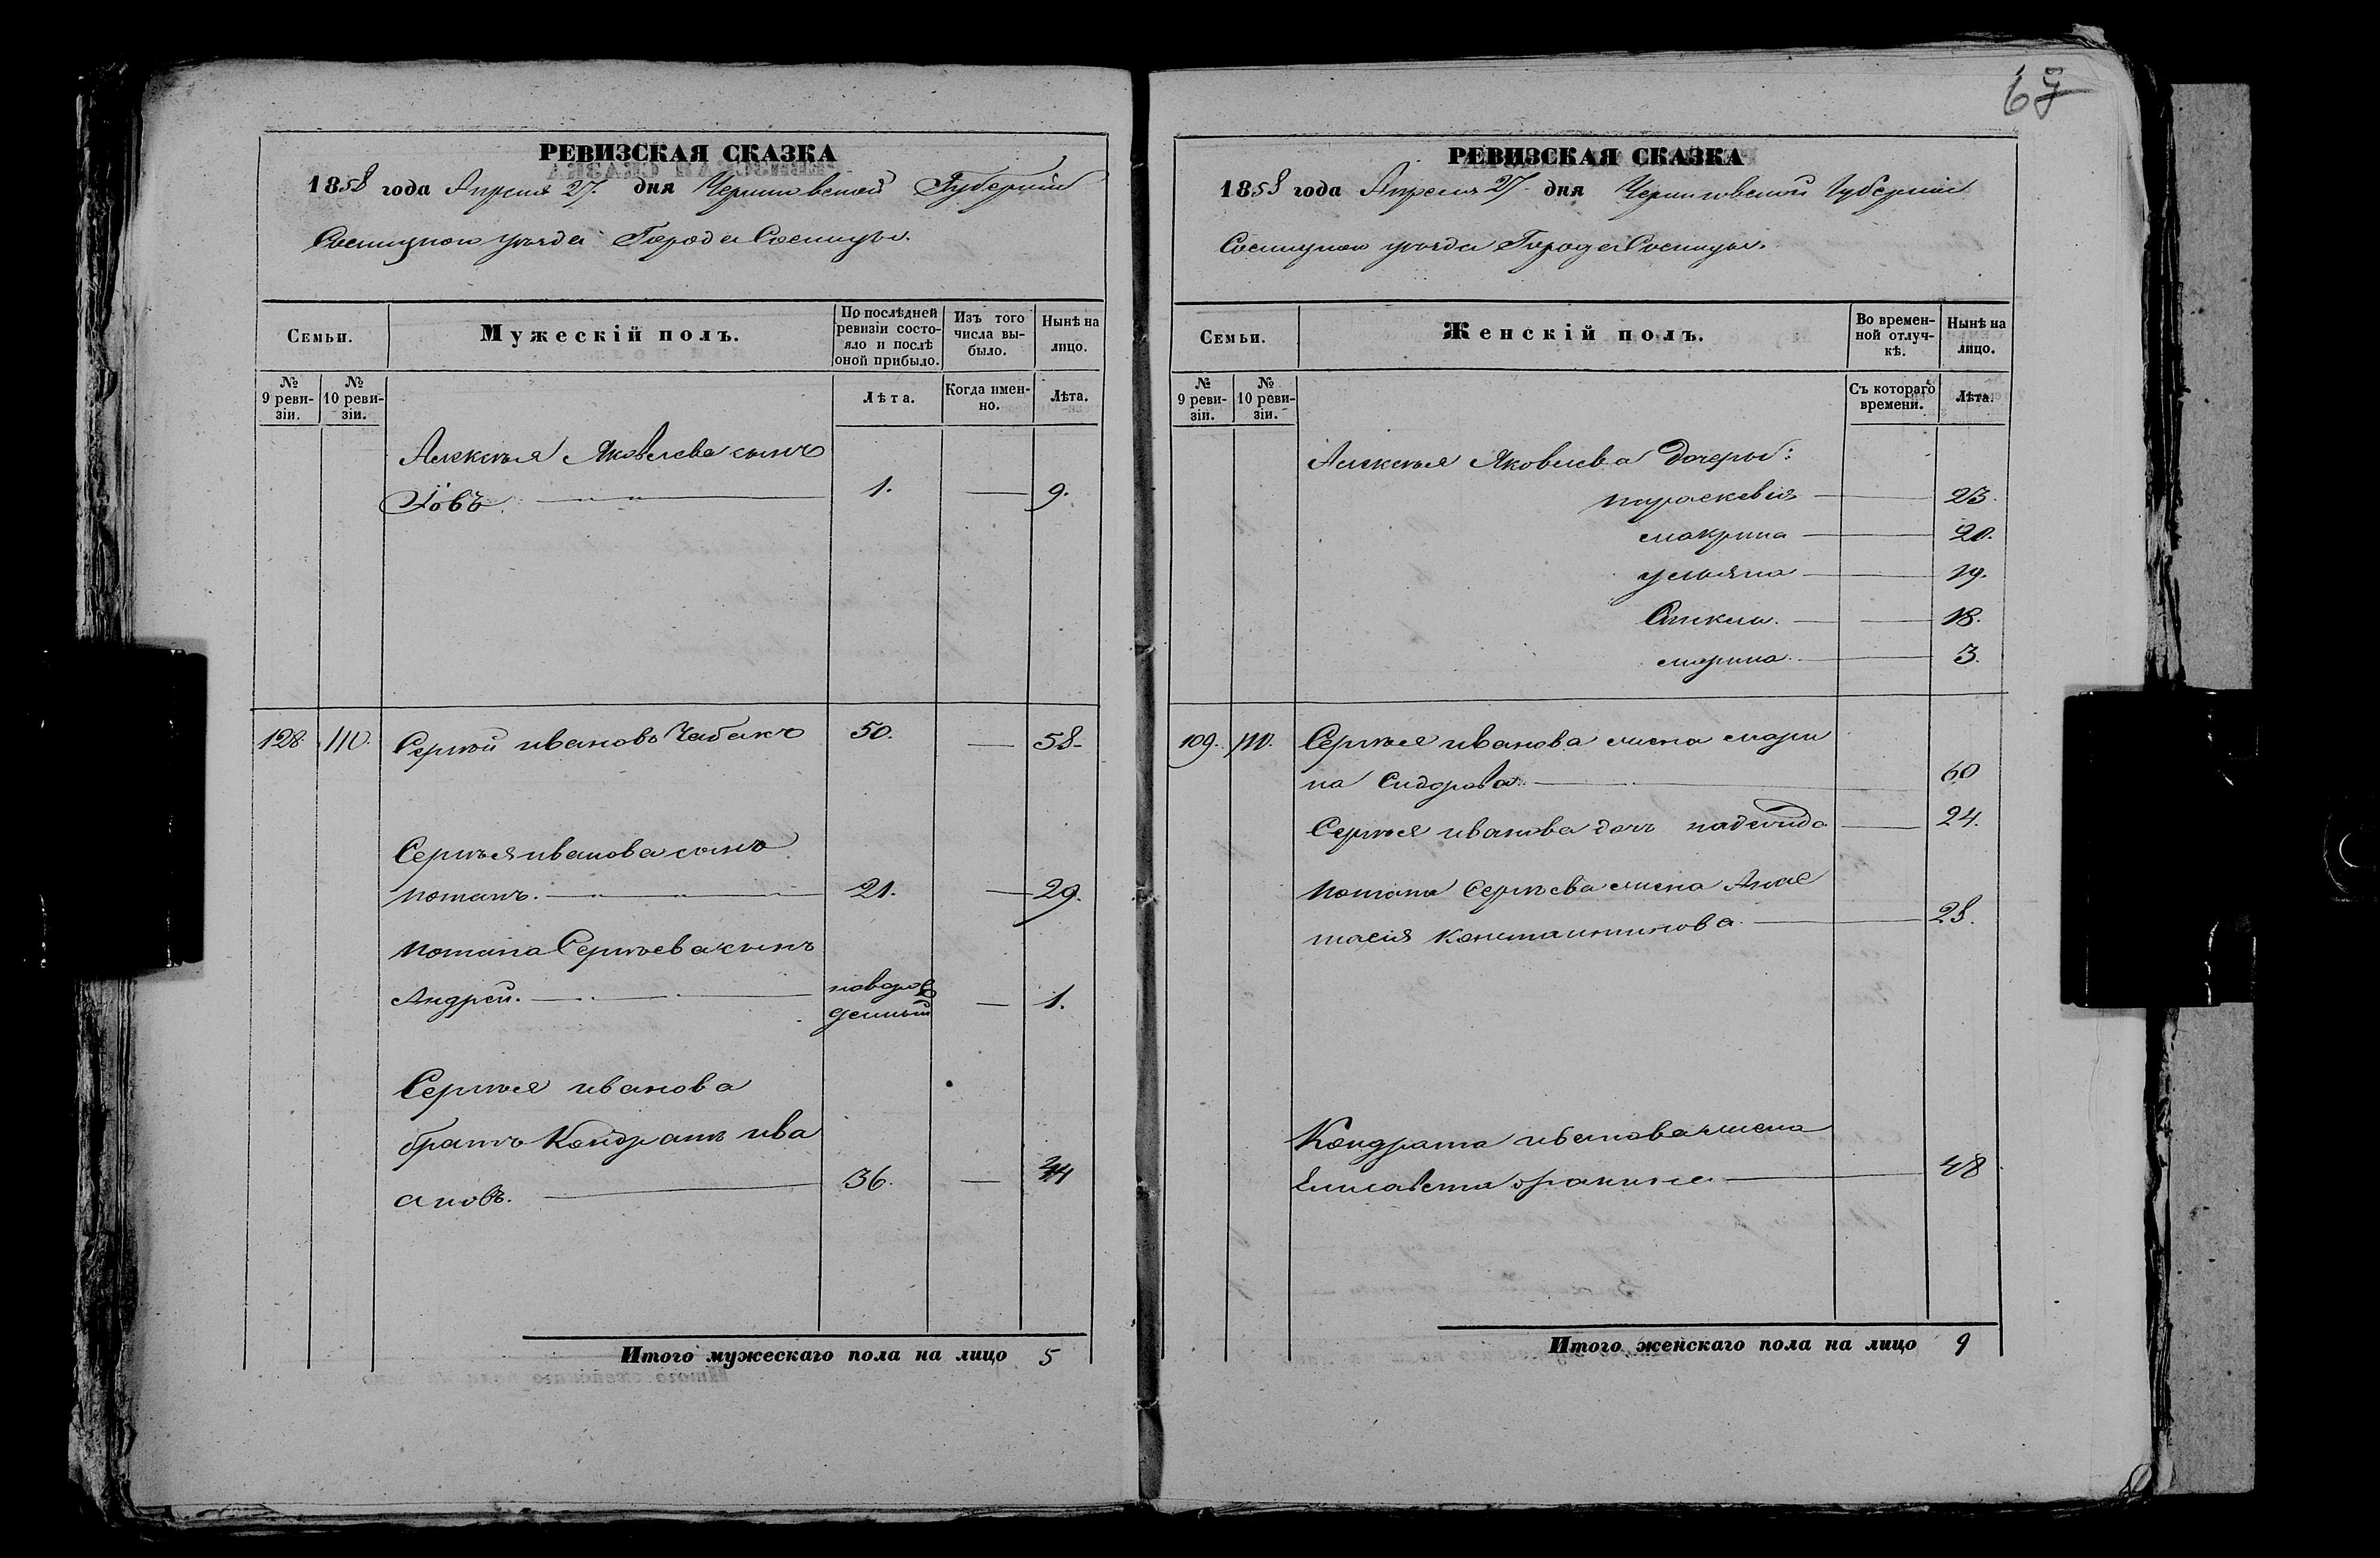 67
РЕВИЗСКАЯ СКАЗКА
1858 года Апреля 27. дня Черниговской Губерніи
Сосницкого уѣзда Города Сосницы.
Семьи.
Мужескій полъ.
По послѣдней ревизіи состояло и послѣ оной прибыло.
Изъ того числа выбыло.
Нынѣ на лицо.
№ 9 ревизіи.
№ 10 ревизіи.
Лѣта.
Когда именно.
Лѣта.
Алексѣя Яковлева сынъ
Іовъ 1. — 9.
128. 110. Сергѣй ивановъ Чабакъ 50. — 58.
Сергѣя иванова сынъ
потапъ. 21. — 29.
потапа Сергѣева сынъ
Андрей. новорож
денный — 1.
Сергѣя иванова
братъ Кондратъ ива
новъ. 36. — 44
Итого мужескаго пола на лицо 5
РЕВИЗСКАЯ СКАЗКА
1858 года Апреля 27. дня Черниговской Губерніи
Сосницкого уѣзда Города Сосницы.
Семьи.
Женскій полъ.
Во временной отлучкѣ.
Нынѣ на лицо.
№ 9 ревизіи.
№ 10 ревизіи.
Съ котораго времени.
Лѣта.
Алексѣя Яковлева Дочеры:
параскевія — 23.
макрина — 20.
ульяна — 19.
— 18.
марина — 3.
109. 110. Сергѣя иванова жена мари
на Сидорова — 60
Сергѣя иванова дочь надежда — 24.
потапа Сергѣева жена Анас
тасія Константинова — 28.
Кондрата иванова жена
Елисавета — 48
Итого женскаго пола на лицо 9